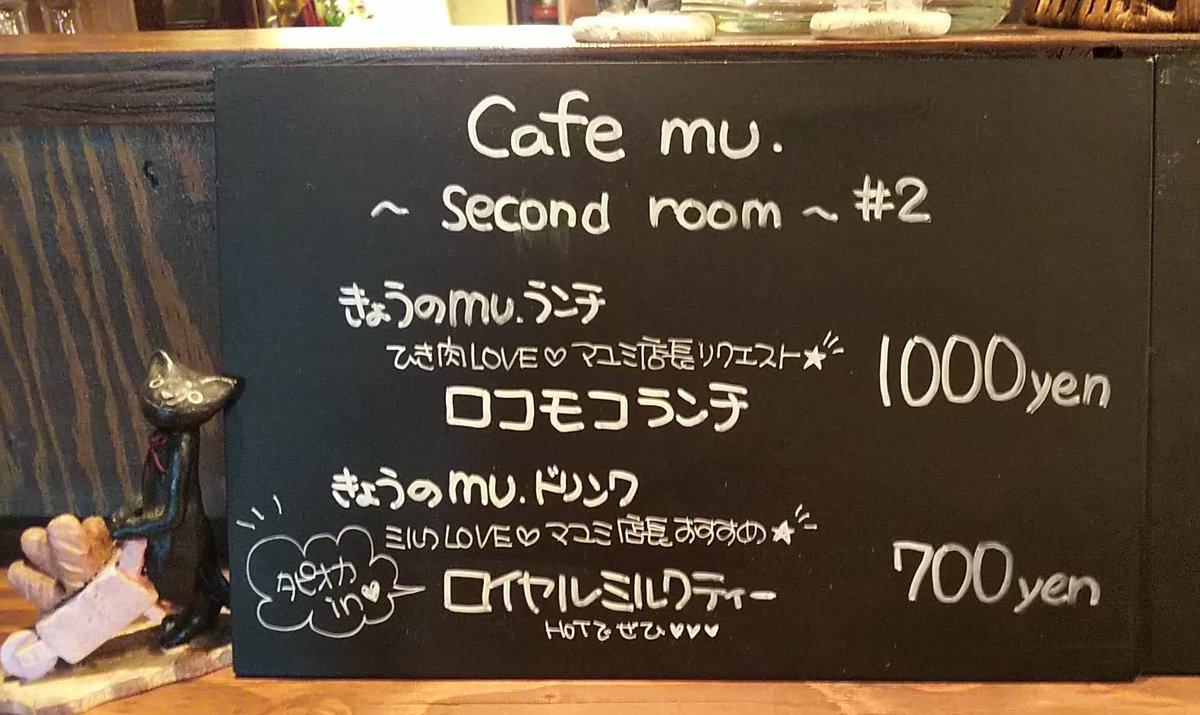 Cafe mu.
~ Second room ~ #2
きょうのmu.ランチ
ひき肉LOVE♡マユミ店長リクエスト★
ロコモコランチ
1000yen
きょうのmu.ドリンク
LOVE♡マユミ店長おすすめ★
タピオカ
in♥
ロイヤルミルクティー
700yen
HOTでぜひ♥♥♥